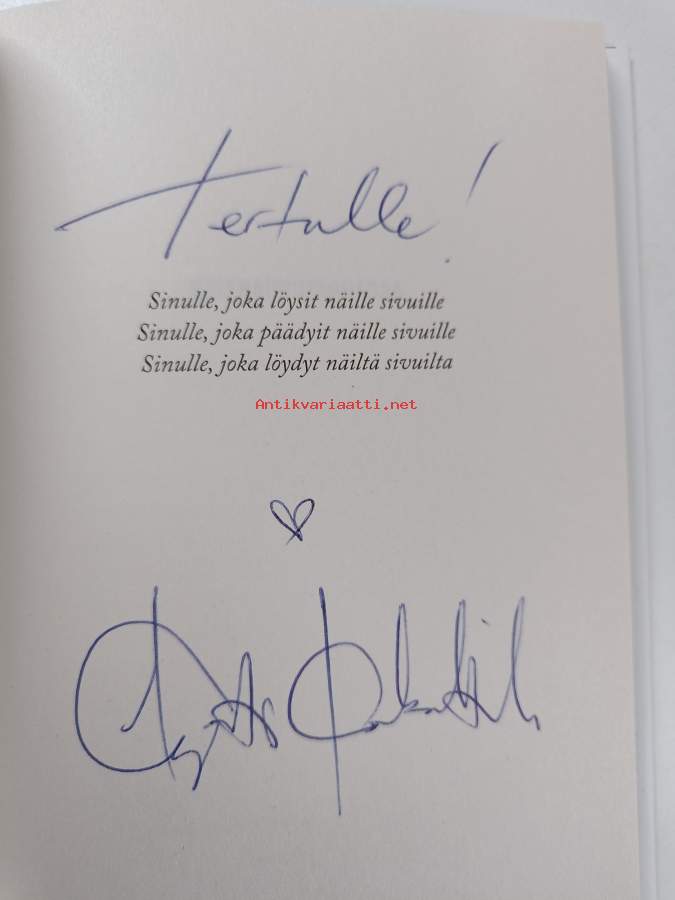 Tertulle!
Sinulle, joka löysit näille sivuille
Sinulle, joka päädyit näille sivuille
Sinulle, joka löydyt näiltä sivuilta
Antikvariaatti.net